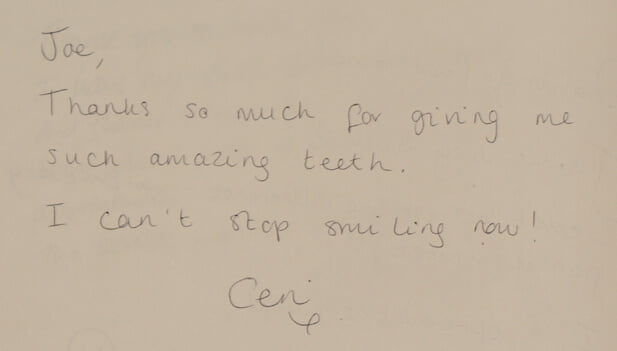 Joe,
Thanks so much for giving me
such amazing teeth.
I can't stop smiling now!
Ceri